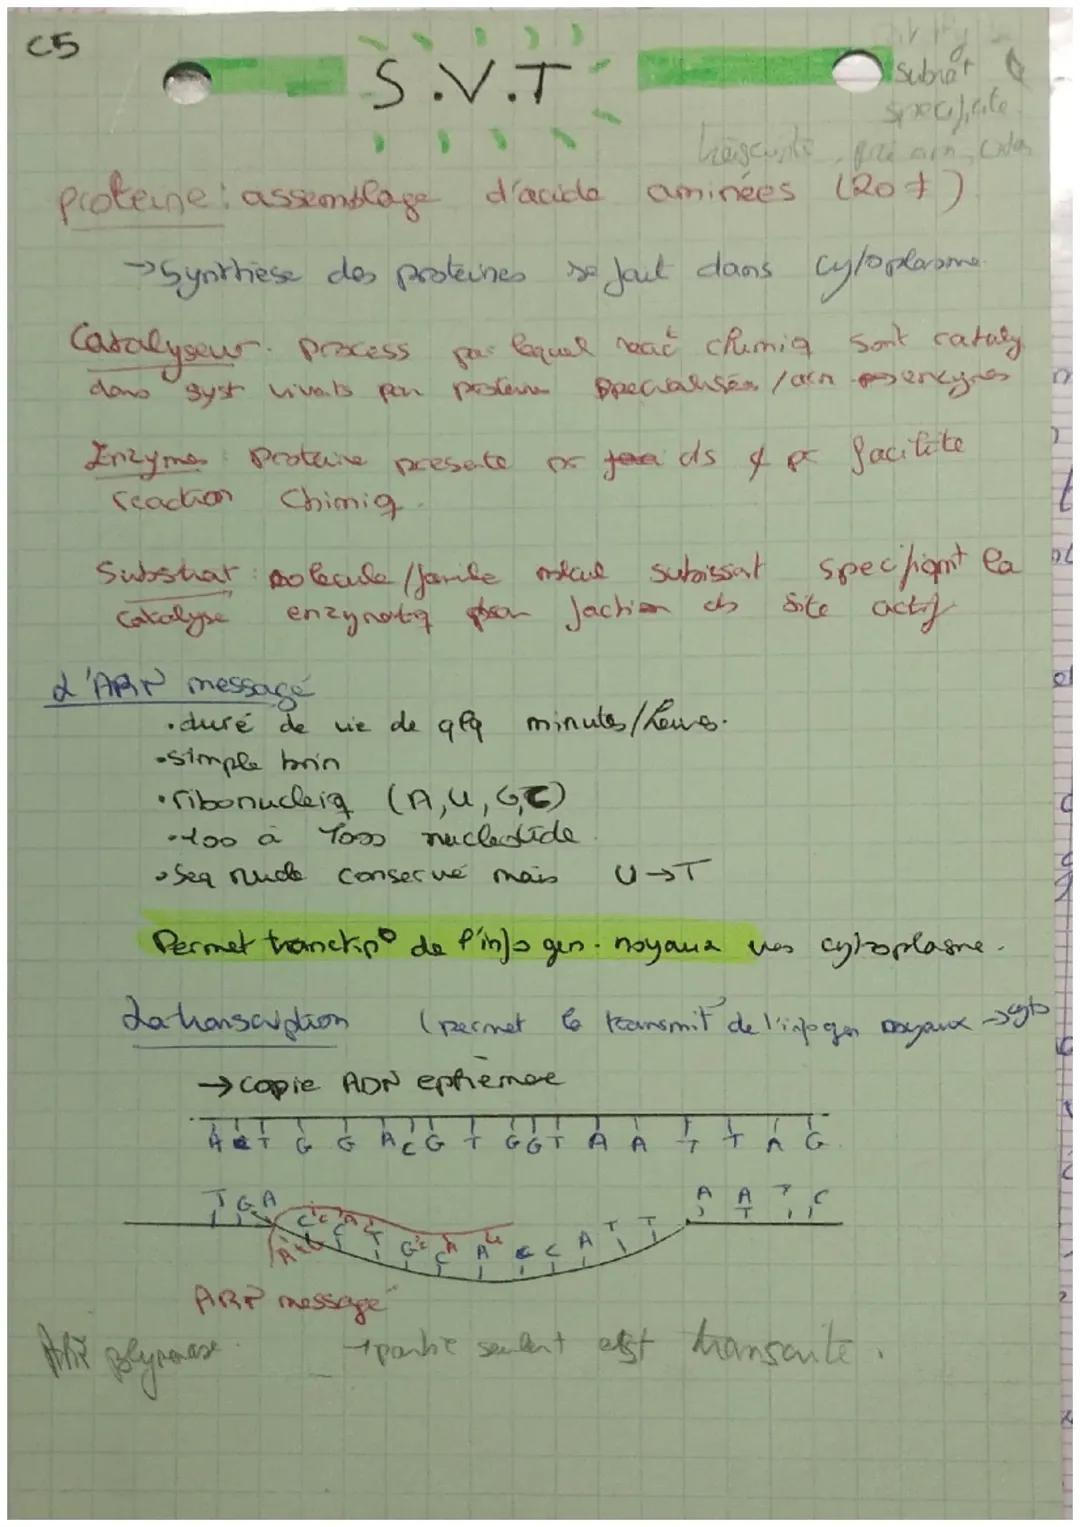 C5
S.V.T
subrat
specificite
proteine : assemblage d'acide aminées (20 ≠)
→ Synthèse des proteines se fait dans cytoplasme.
Catalyseur. process par lequel reac° chimiq sont cataly
dans syst vivats par proteine specialisées / arn enzymes
Enzymes : Proteine presente ds & pr facilite
reaction Chimiq.
Substrat : molecule / subissat specifiqnt la
catalyse enzymatiq action ds site actif
L'ARN messagé
• duré de vie de qlq minutes/heures.
• simple brin
• ribonucleiq (A, U, G, C)
• nucleotide.
• Seq nucle conservé mais U → T
Permet transcrip° de l'info gen. noyaux vers cytoplasme.
La transcription (permet le transmit° de l'info gen noyaux → cyto
→ copie ADN ephémere
A C T G G A C G T G G T A A T T A G
T G A A A T C
C C T G C A C C A T T
ARN messagé
ARN polymerase. → partie seulent est transcrite.